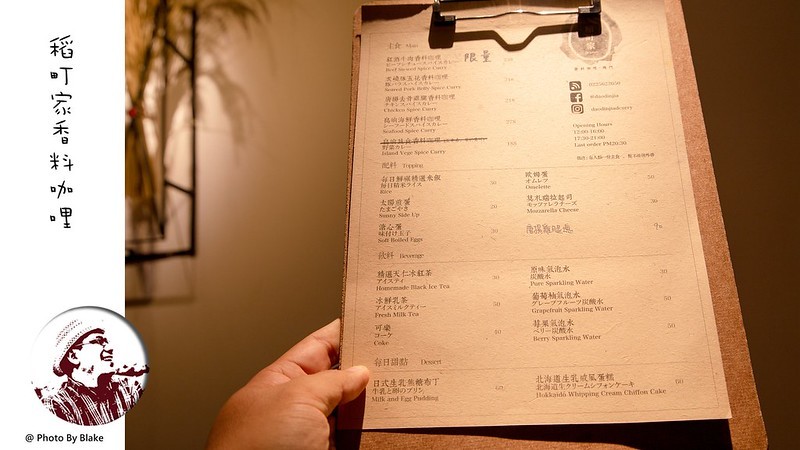 稻町家香料咖哩
@ Photo By Blake
主食 Main
紅酒牛肉香料咖哩 限量
ビーフシチュースパイスカレー
Beef Stewed Spice Curry
豚バラスパイスカレー
Seared Pork Belly Spice Curry
チキンスパイスカレー
Chicken Spice Curry
島嶼海鮮香料咖哩
シーフードスパイスカレー
Seafood Spice Curry
島嶼蔬食香料咖哩
野菜カレー
Island Vege Spice Curry
配料 Topping
每日鮮碾精選米飯
毎日精米ライス
Rice
太陽煎蛋
たまごやき
Sunny Side Up
溏心蛋
味付け玉子
Soft Boiled Eggs
飲料 Beverage
精選天仁冰紅茶
アイスティ
Homemade Black Ice Tea
冰鮮乳茶
アイスミルクティー
Fresh Milk Tea
可樂
コーク
Coke
每日甜點 Dessert
日式生乳焦糖布丁
牛乳と卵のプリン
Milk and Egg Pudding
家
Opening Hours
12:00-16:00
17:30-21:00
Last order PM20:30
歐姆蛋
オムレツ
Omelette
莫札瑞拉起司
モッツァレラチーズ
Mozzarella Cheese
原味氣泡水
炭酸水
Pure Sparkling Water
葡萄柚氣泡水
グレープフルーツ炭酸水
Grapefruit Sparkling Water
莓果氣泡水
ベリー炭酸水
Berry Sparkling Water
北海道生乳戚風蛋糕
北海道生クリームシフォンケーキ
Hokkaido Whipping Cream Chiffon Cake